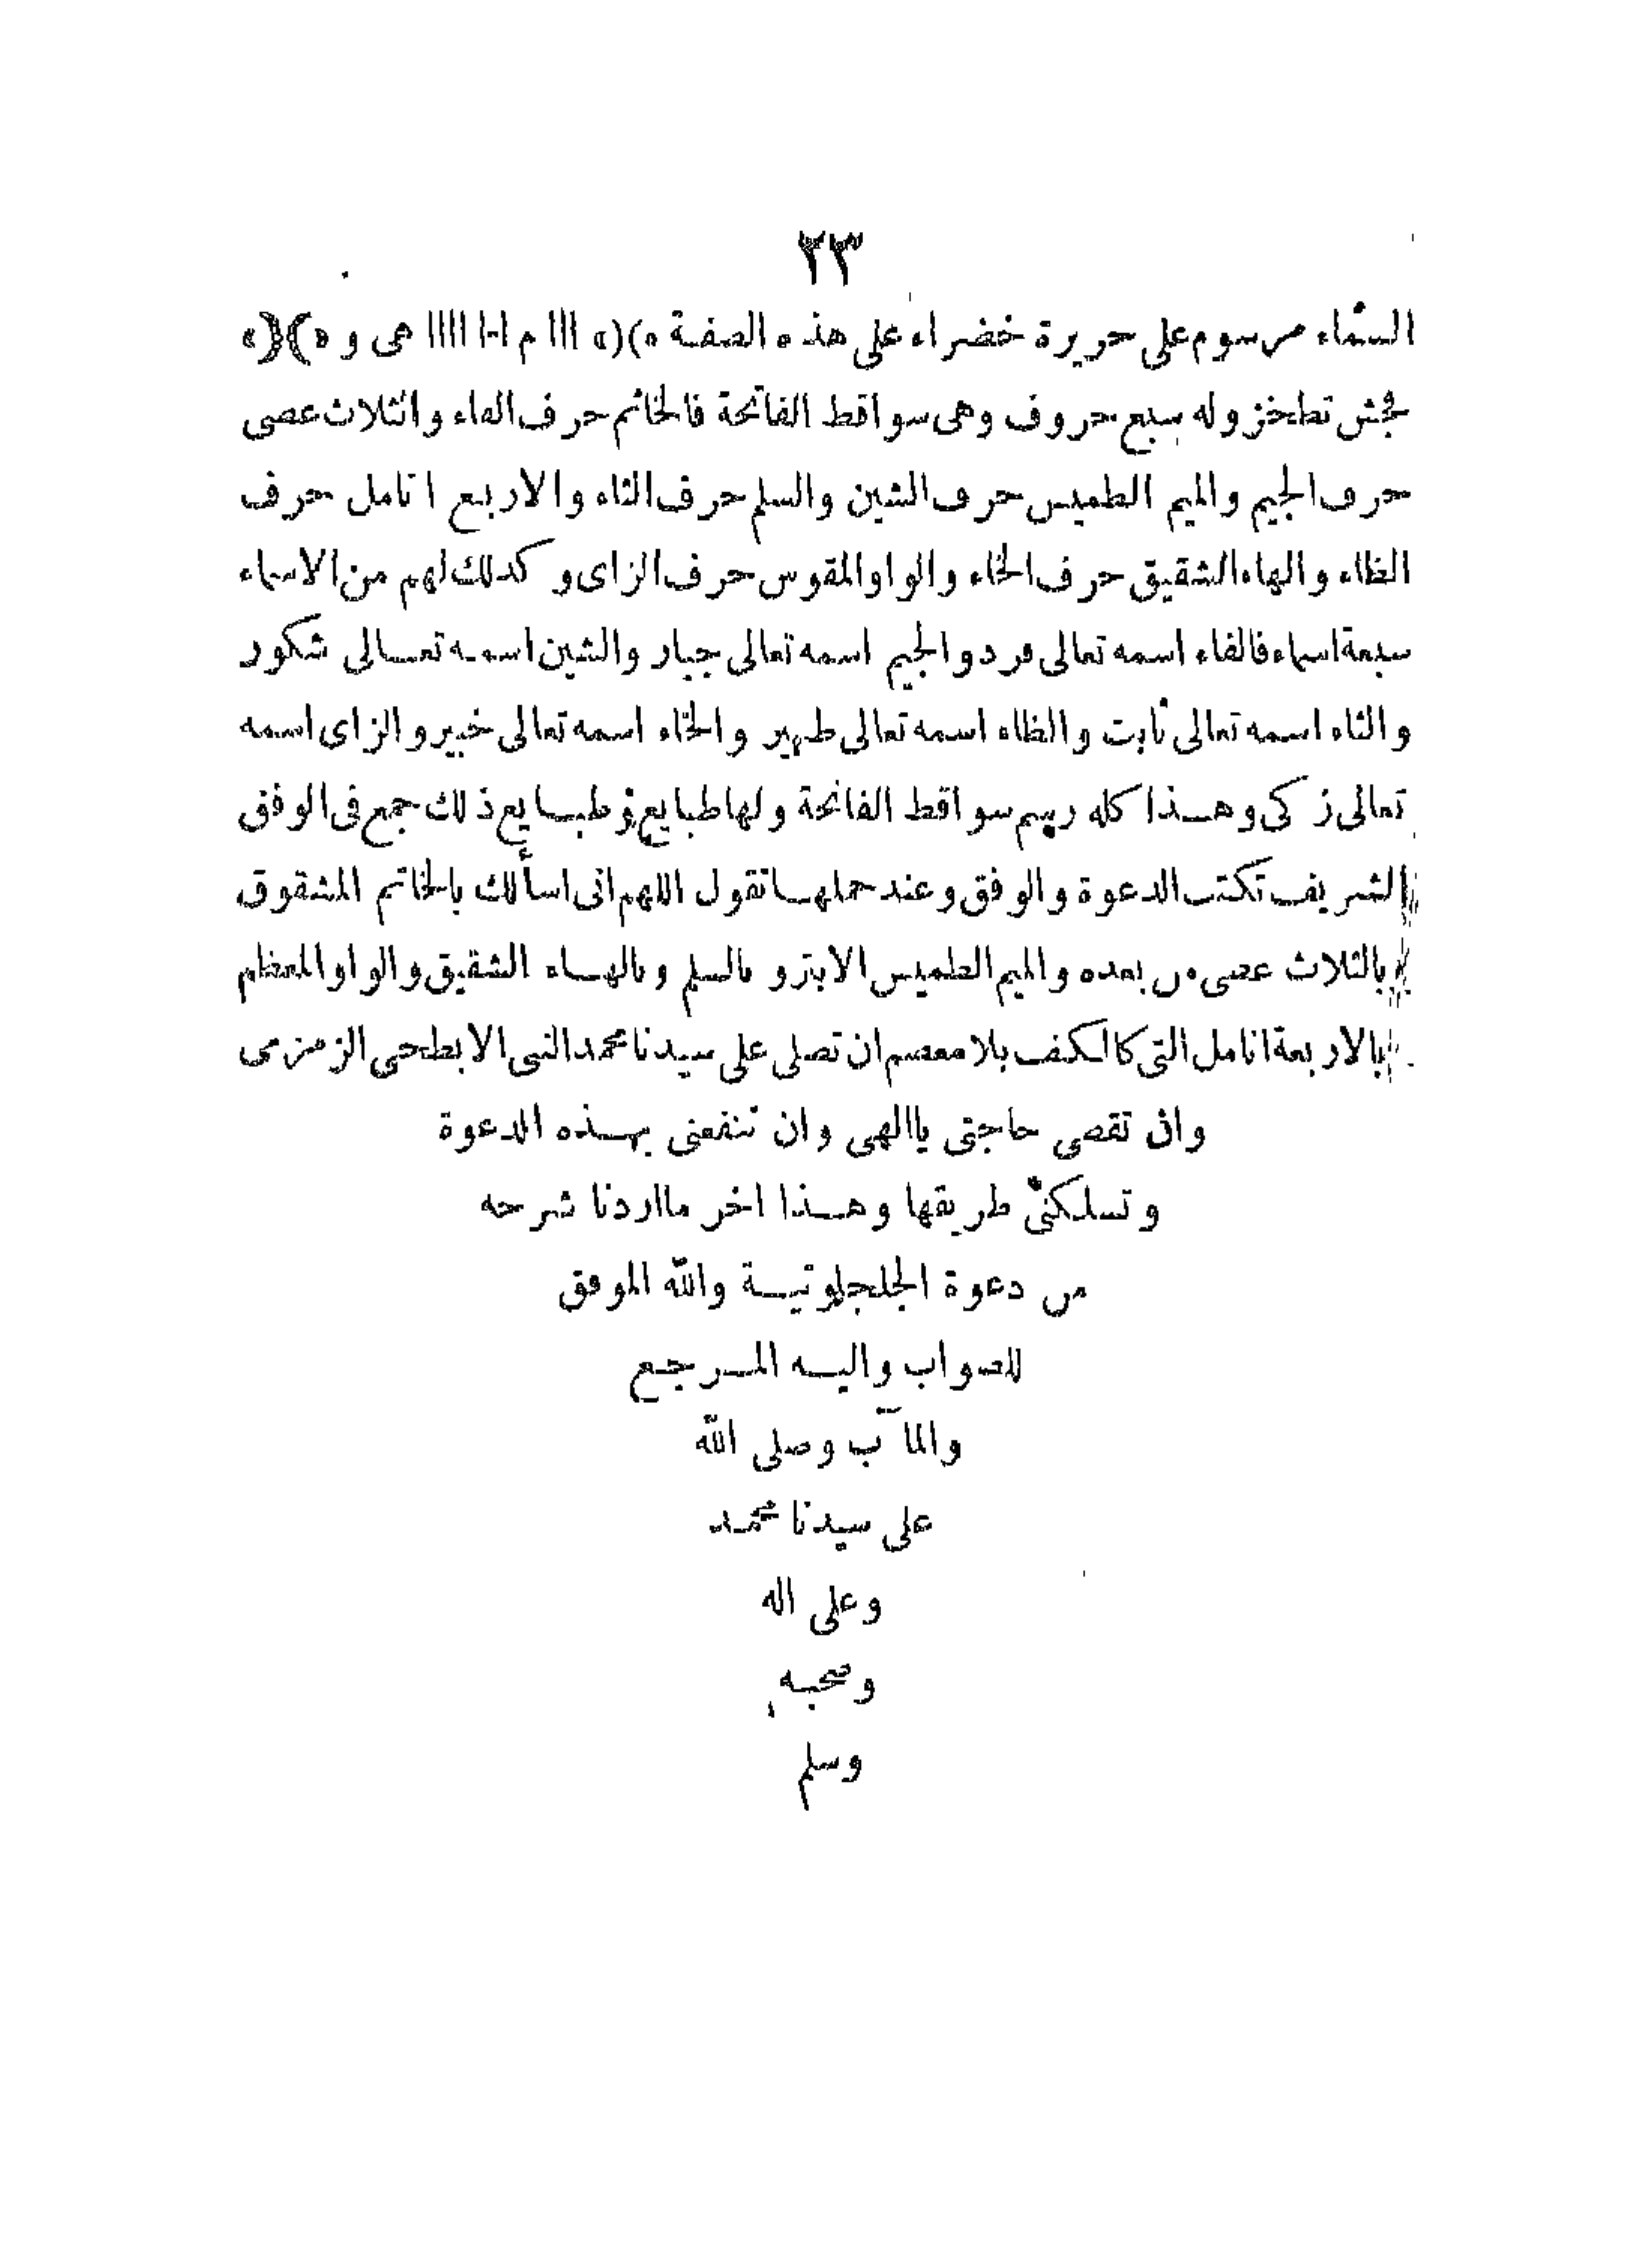 ٢٣
السماء مرسوم على حريرة خضراء على هذه الصفة ه)(ه ااا م ا-ا اااا هى و ه)(ه
فجش تظخز وله سبع حروف وهى سواقط الفاتحة فالخاتم حرف الفاء والثلاث عصى
حرف الجيم والميم الطميس حرف الشين والسلم حرف الثاء والاربع انامل حرف
الظاء والهاء الشقيق حرف الخاء والواو المقوس حرف الزاى وكذلك لهم من الاسماء
سبعة اسماء فالفاء اسمه تعالى فرد والجيم اسمه تعالى جبار والشين اسمه تعالى شكور
والثاء اسمه تعالى ثابت والظاء اسمه تعالى ظهير والخاء اسمه تعالى خبير والزاى اسمه
تعالى زكى وهذا كله رسم سواقط الفاتحة ولها طبايع وطبايع ذلك جمع فى الوفق
الشريف تكتب الدعوة والوفق وعند حملها تقول اللهم انى اسألك بالخاتم المشقوق
بالثلاث عصى من بعده والميم الطميس الابتر وبالسلم وبالهاء الشقيق والواو المعظم
بالاربعة انامل التى كالكف بلا معصم ان تصلى على سيدنا محمد النبى الابطحى الزمزمى
وان تقضى حاجتى ياالهى وان تنفعنى بهذه الدعوة
وتسلكنى طريقها وهذا اخر مااردنا شرحه
من دعوة الجلجلوتية والله الموفق
للصواب واليه المرجع
والمآب وصلى الله
على سيدنا محمد
وعلى اله
وصحبه
وسلم